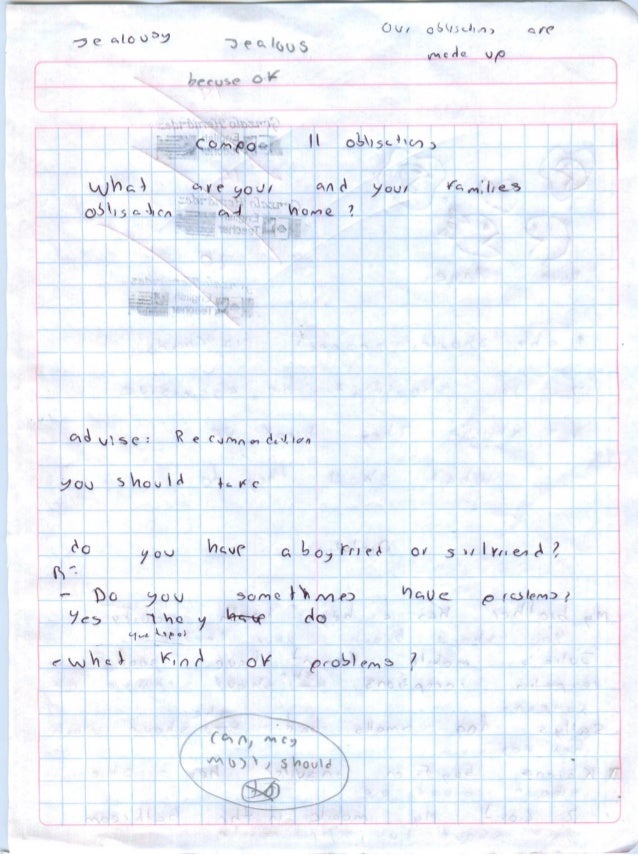 Jealousy Jealous Our obligations are
made up
becuse of
compo 11 obligations
What are your and your families
obligation at home?
advise: Recommendation
you should take
do you have a boyfried or girlfriend?
R=
- Do you somethmes have problems?
Yes They have do
que tipos
- What Kind of problems?
can, may
must, should